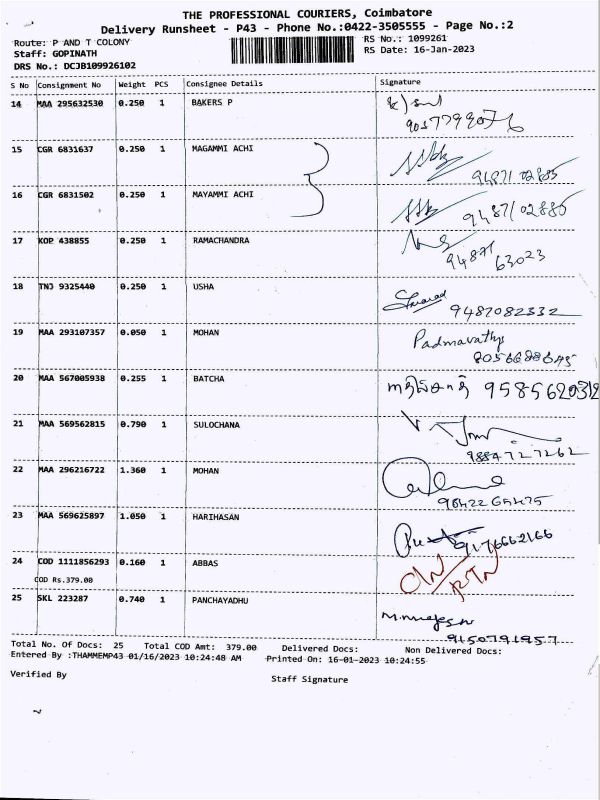 THE PROFESSIONAL COURIERS, Coimbatore
Delivery Runsheet - P43 - Phone No.:0422-3505555 - Page No.:2
Route: P AND T COLONY
RS No.: 1099261
Staff: GOPINATH
RS Date: 16-Jan-2023
DRS No.: DCJB109926102
S No Consignment No Weight PCS Consignee Details Signature
14 MAA 295632530 0.250 1 BAKERS P
15 CGR 6831637 0.250 1 MAGAMMI ACHI
9487102885
16 CGR 6831502 0.250 1 MAYAMMI ACHI
9487102885
17 KOP 438855 0.250 1 RAMACHANDRA
94871
63023
18 TNJ 9325440 0.250 1 USHA
9487082332
19 MAA 293107357 0.050 1 MOHAN
Padmavathy
20 MAA 567005938 0.255 1 BATCHA
9585620312
21 MAA 569562815 0.790 1 SULOCHANA
9884727262
22 MAA 296216722 1.360 1 MOHAN
23 MAA 569625897 1.050 1 HARIHASAN
9176662166
24 COD 1111856293 0.160 1 ABBAS
COD Rs.379.00
25 SKL 223287 0.740 1 PANCHAYADHU
9150791957
Total No. Of Docs: 25 Total COD Amt: 379.00 Delivered Docs: Non Delivered Docs:
Entered By :THAMMEMP43 01/16/2023 10:24:48 AM Printed On: 16-01-2023 10:24:55
Verified By
Staff Signature